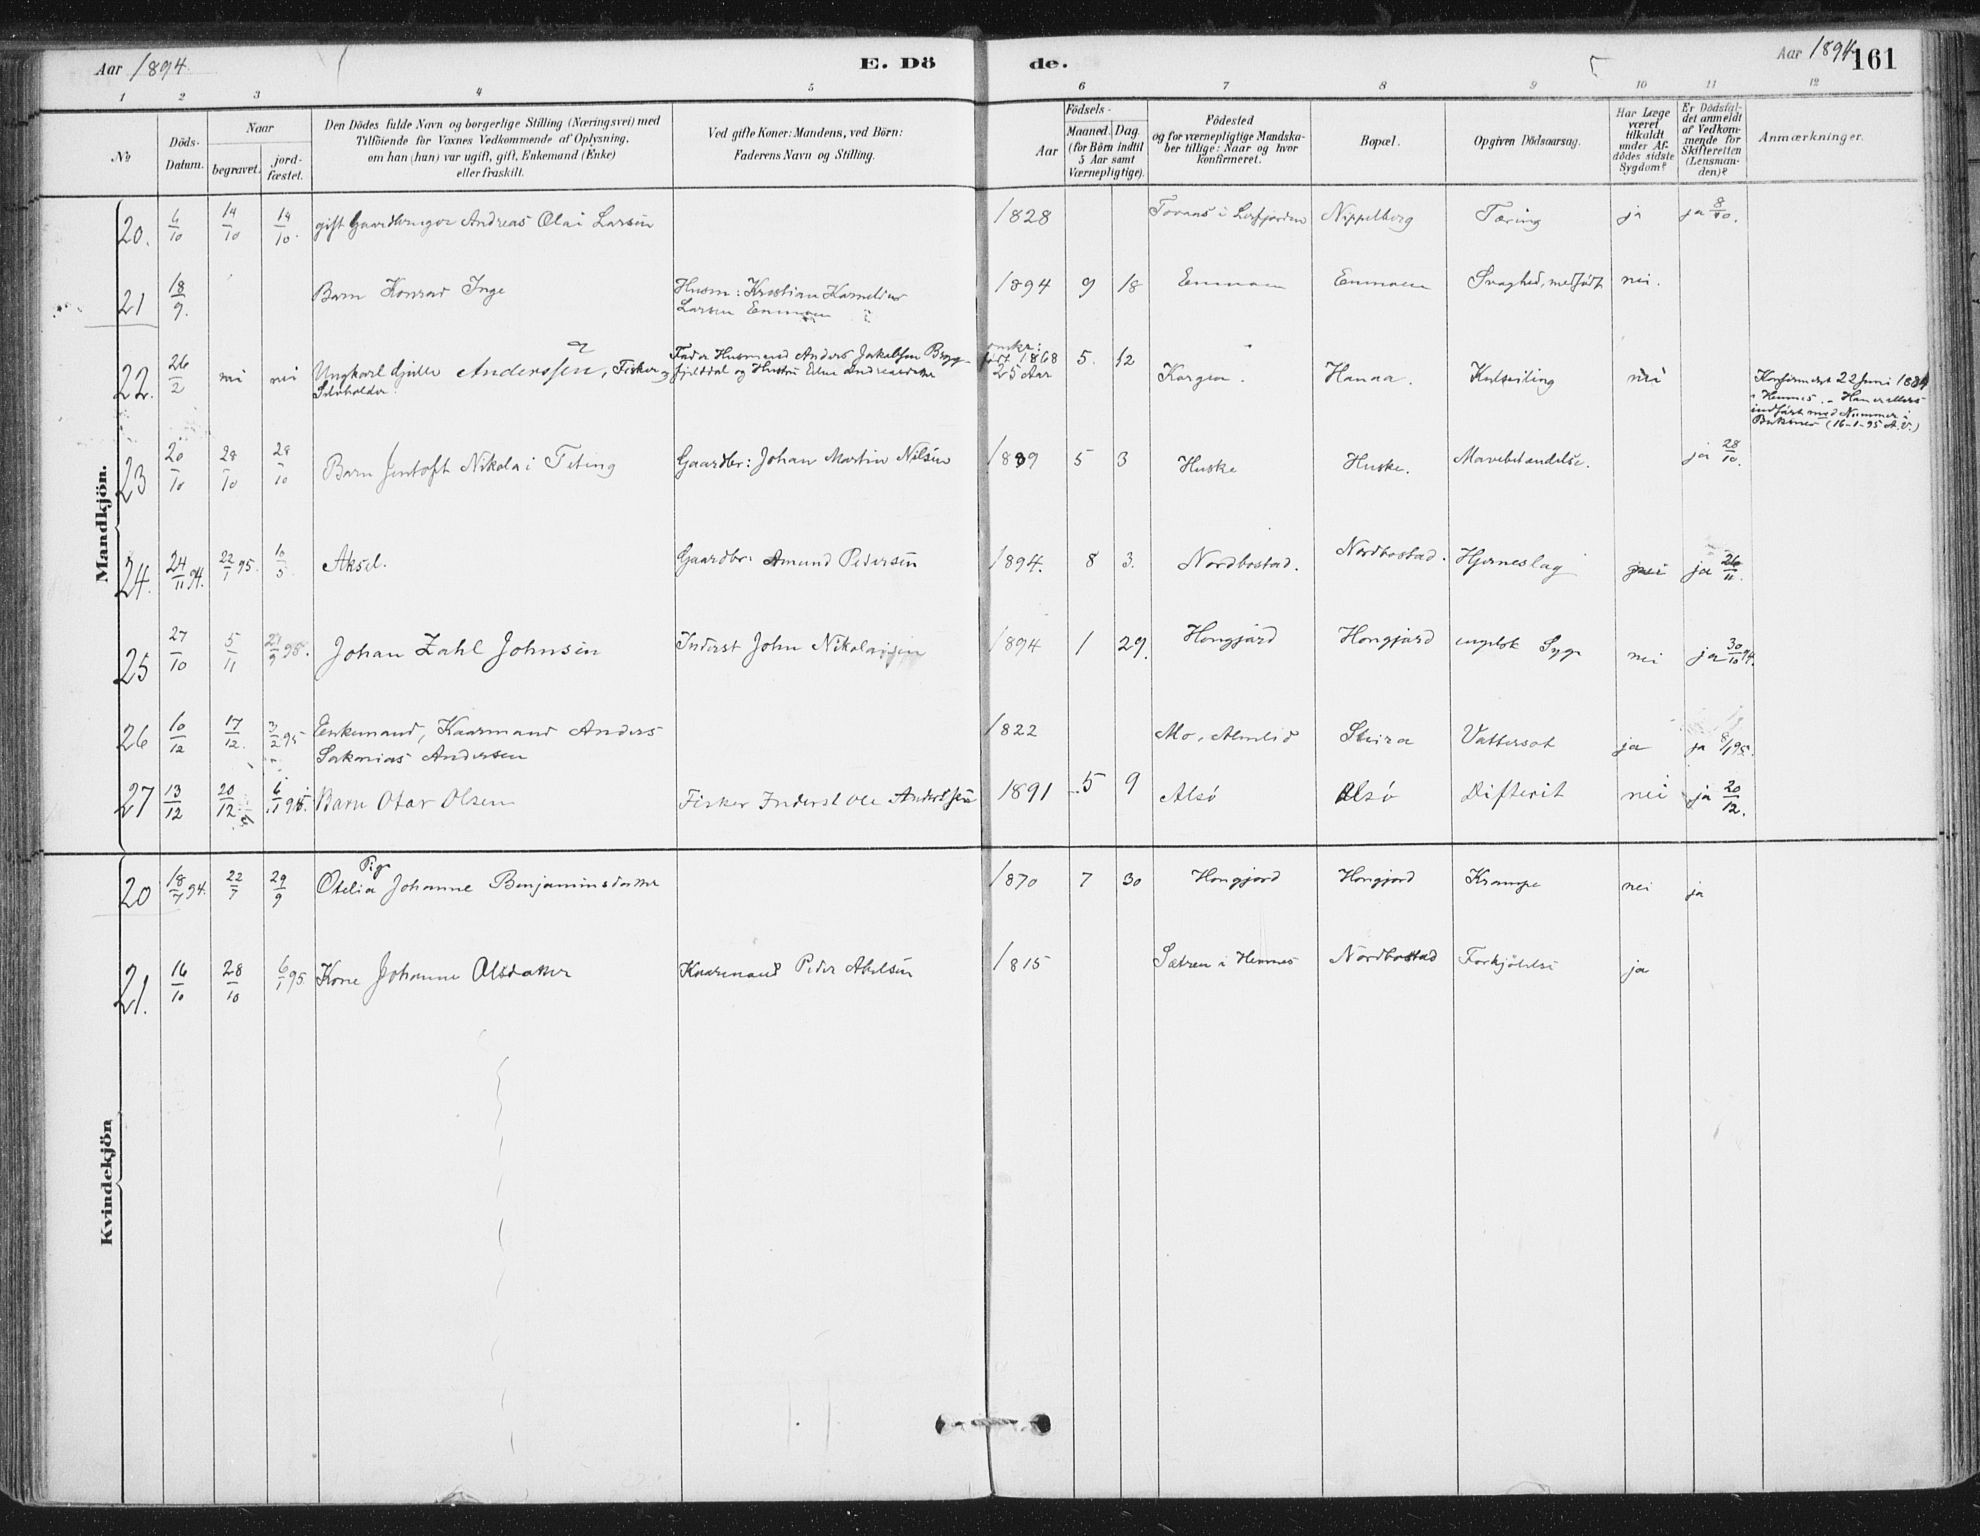 Aar 1894 E. Dö de. Aar 1894 161
1 2 3 4 5 6 7 8 9 10 11 12
№
Döds-Datum.
Naar
begravet.
jord-fæstet.
Den Dödes fulde Navn og borgerlige Stilling (Næringsvei) med
Tilföiende for Voxnes Vedkommende af Oplysning,
om han (hun) var ugift, gift, Enkemand (Enke)
eller fraskilt.
Ved gifte Koner: Mandens, ved Börn:
Faderens Navn og Stilling.
Födsels-
Aar
Maaned. Dag.
(for Börn indtil
5 Aar samt
Værnepligtige).
Födested
og for værnepligtige Mandska-
ber tillige: Naar og hvor
konfirmeret.
Bopæl.
Opgiven Dödsaarsag.
Har Læge
været
tilkaldt
under Af-
dödes sidste
Sygdom?
Er Dödsfal-
det anmeldt
af Vedkom-
mende for
Skifteretten
(Lensman-
den)?
Anmærkninger.
Mandkjön.
20. 6/10 14/10 14/10. gift Gaardbruger Andreas Olai Larsen 1828 Toraas i Lerfjorden Nippelberg Tæring ja ja 8/10.
21 18/9. Barn Konrad Inge Husm: Kristian Kornelius 1894 9 18 Enmoen Enmoen Svaghed, medfödt nei.
Larsen Enmoen
22. 26/2 nei nei Ungkarl Hjalle Anderssen, Fisker og Fader Husmand Anders Jakobsen Bryg- omkr: 1868 5. 12 Korgen. Hanaa. Kulseiling nei Konfirmeret 22 Juni 1884
Selvholder. fjelddal og Hustru Edne Andreasdatter 25 Aar i Hemnes. Han er atters
indfört med Nummer i
(16-1-95 A.V.)
23 20/10 28/10 28/10 Barn Jentoft Nikolai Teting Gaardbr: Johan Martin Nilsen 1889 5 3 Huske Huske. Mavebetændelse. ja 28/10.
24. 24/11 94. 22/1 95. 10/5 Aksel. Gaardbr: Amund Pedersen 1894. 8 3. Nordbostad. Nordbostad. Hjerneslag nei ja 26/11.
25 27/10 5/11 29/9 95. Johan Zahl Johnsen Inderst John Nikolaisen 1894 1 29. Hongjärd Hongjard engelsk Syge nei ja 30/10 94.
26 10/12 17/12. 3/2 95 Enkemand, Kaarmand Anders 1822 Mo, Almlid Steira Vattersot ja ja 8/1 95.
Sakarias Andersen
27 13/12 20/12 6/1 95. Barn Otar Olsen Fisker Inderst Ole Anderssen 1891 5 9 Alsö Alsö Difterit nei ja 20/12.
Kvindekjön
20 18/7 94. 22/7 29/9 Pige Otelia Johanne Benjaminsdatter 1870 7 30 Hongjord Hongjord Krampe nei ja
21. 16/10 28/10 6/1 95 Kone Johanne Olsdatter Kaarmand Peder Abelsen 1815 Sætren i Hemnes Nordbostad Forkjölelse ja